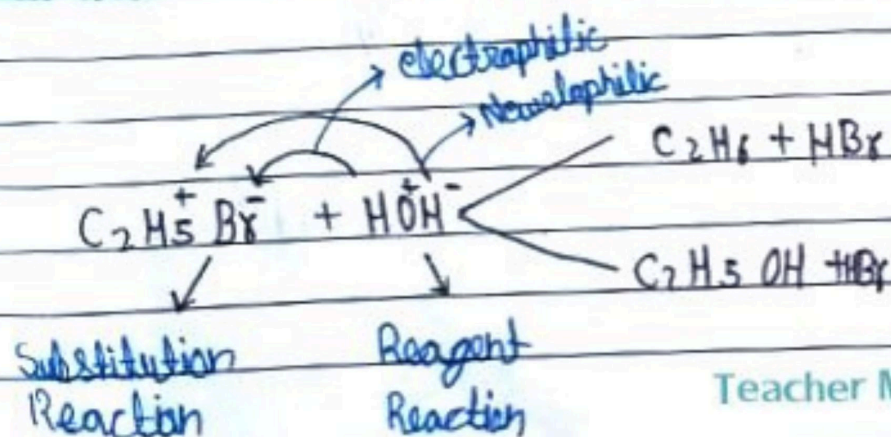 electraphilic
Neuelaphilic
C₂H₆ + HBr
C₂H₅⁺ Br⁻ + HO⁺H⁻
C₂H₅ OH + HBr
Substitution Reagent
Reaction Reaction
Teacher